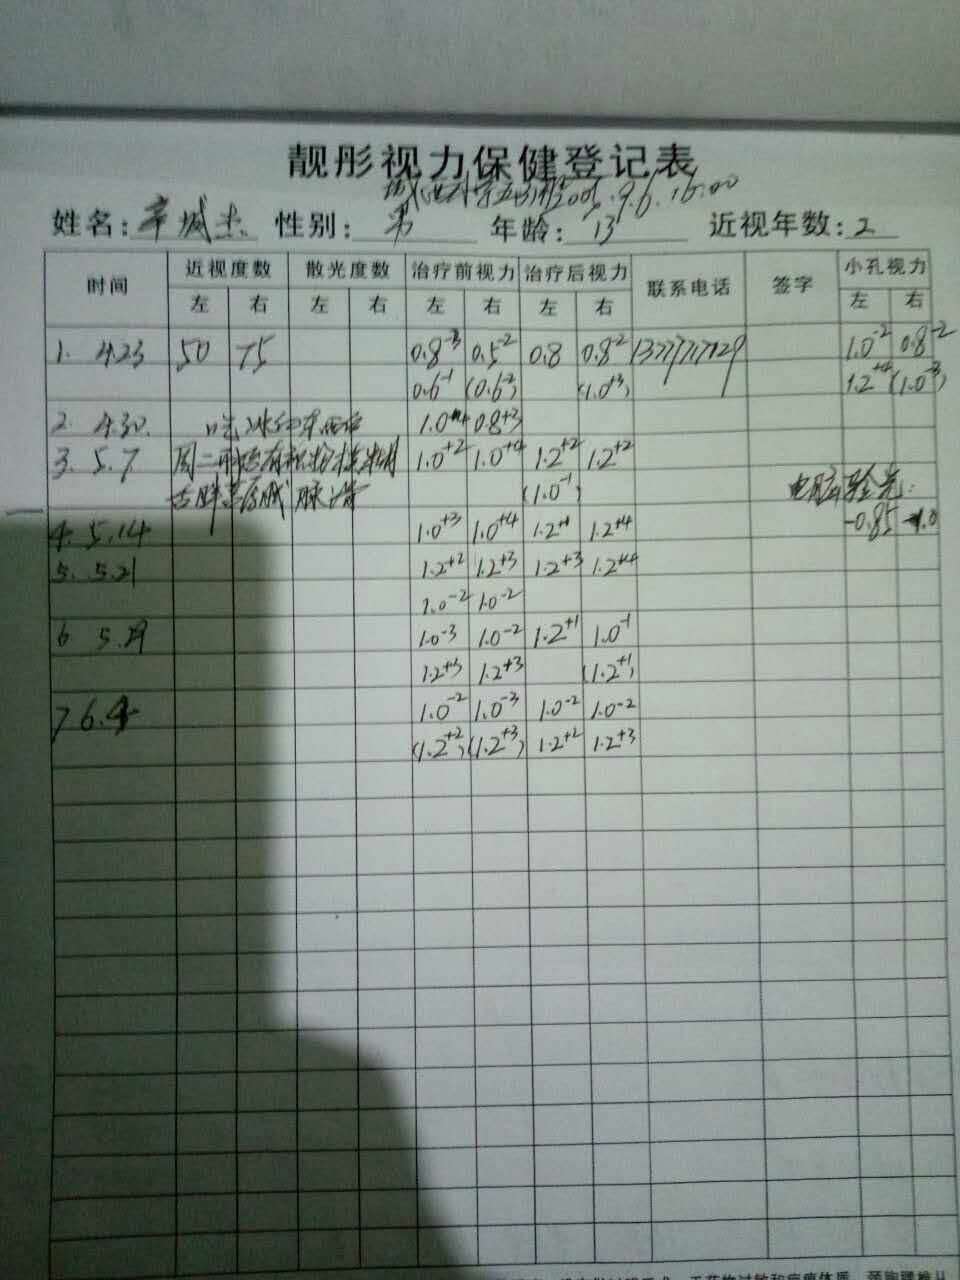 靓彤视力保健登记表
2006.9.6.16:00
姓名: 辛城杰 性别: 男 年龄: 13 近视年数: 2
时间 近视度数 散光度数 治疗前视力 治疗后视力 联系电话 签字 小孔视力
左 右 左 右 左 右 左 右 左 右
1. 4.23 50 75 0.8⁻³ 0.5⁻² 0.8 0.8⁻² 13777717129 1.0⁻² 0.8⁻²
0.6⁻¹ (0.6⁻²) (1.0⁺³) 1.2⁺⁴ (1.0⁻³)
2. 4.30. 1.0⁺⁴ 0.8⁺³
3. 5.7 周二 1.0⁺² 1.0⁺⁴ 1.2⁺² 1.2⁺²
(1.0⁻¹) 电脑验光:
4. 5.14 1.0⁺³ 1.0⁺⁴ 1.2⁺¹ 1.2⁺⁴ -0.85 -1.0
5. 5.21 1.2⁺² 1.2⁺³ 1.2⁺³ 1.2⁺⁴
1.0⁻² 1.0⁻²
6 5.29 1.0⁻³ 1.0⁻² 1.2⁺¹ 1.0⁻¹
1.2⁺³ 1.2⁺³ (1.2⁺¹)
7 6.4 1.0⁻² 1.0⁻³ 1.0⁻² 1.0⁻²
(1.2⁺²) (1.2⁺³) 1.2⁺² 1.2⁺³